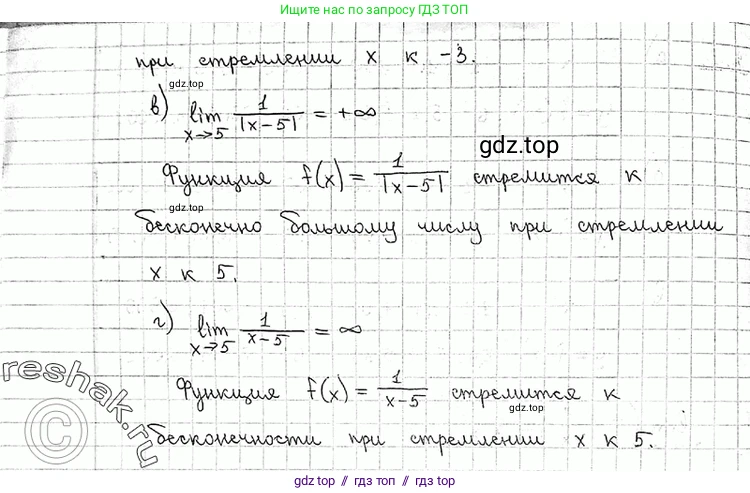 Ищите нас по запросу ГДЗ ТОП
при стремлении x к -3.
gdz.top
в) lim x→5 1/|x-5| = +∞
gdz.top
Функция f(x) = 1/|x-5| стремится к
gdz.top
бесконечно большому числу при стремлении
x к 5.
г) lim x→5 1/(x-5) = ∞
Функция f(x) = 1/(x-5) стремится к
gdz.top
бесконечности при стремлении x к 5.
reshak.ru
©
gdz top // гдз топ // gdz.top